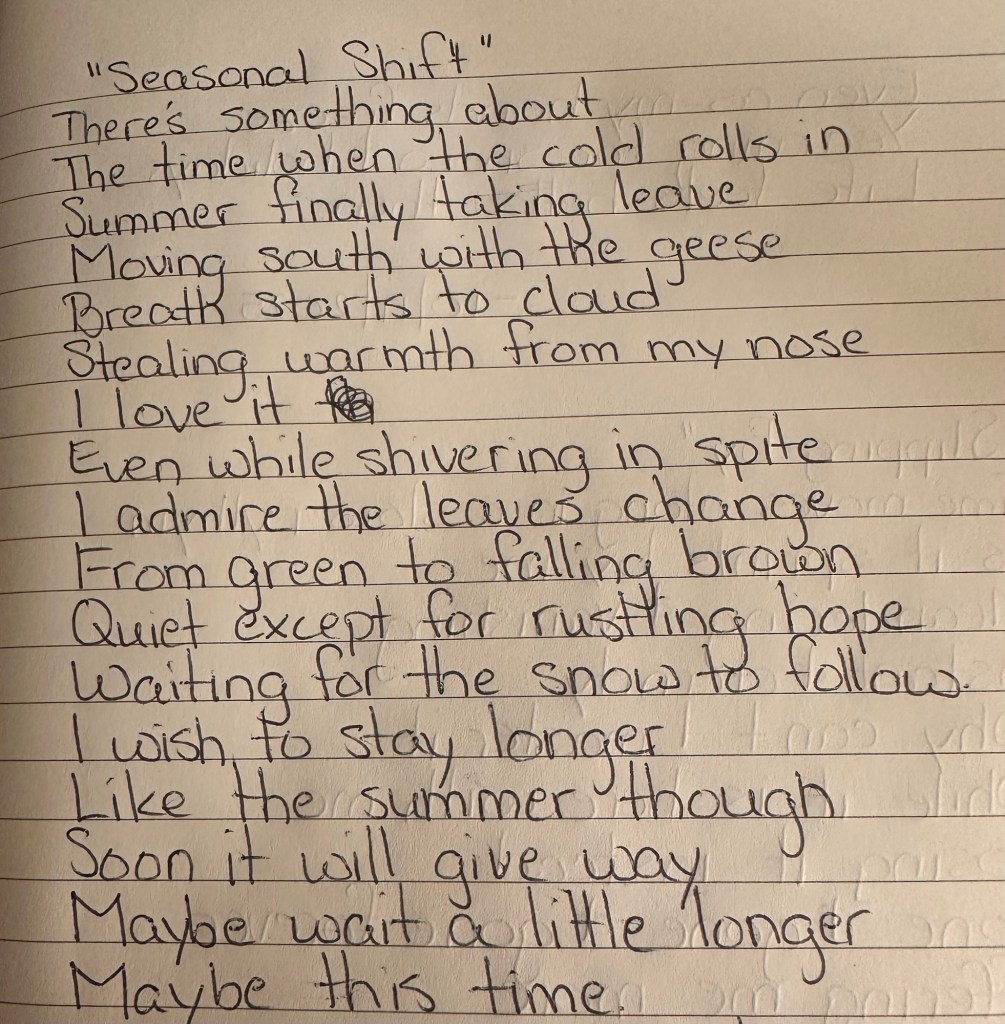 "Seasonal Shift"
There's something about
The time when the cold rolls in
Summer finally taking leave
Moving south with the geese
Breath starts to cloud
Stealing warmth from my nose
I love it
Even while shivering in spite
I admire the leaves change
From green to falling brown
Quiet except for rustling hope
Waiting for the snow to follow.
I wish to stay longer
Like the summer though
Soon it will give way
Maybe wait a little longer
Maybe this time.